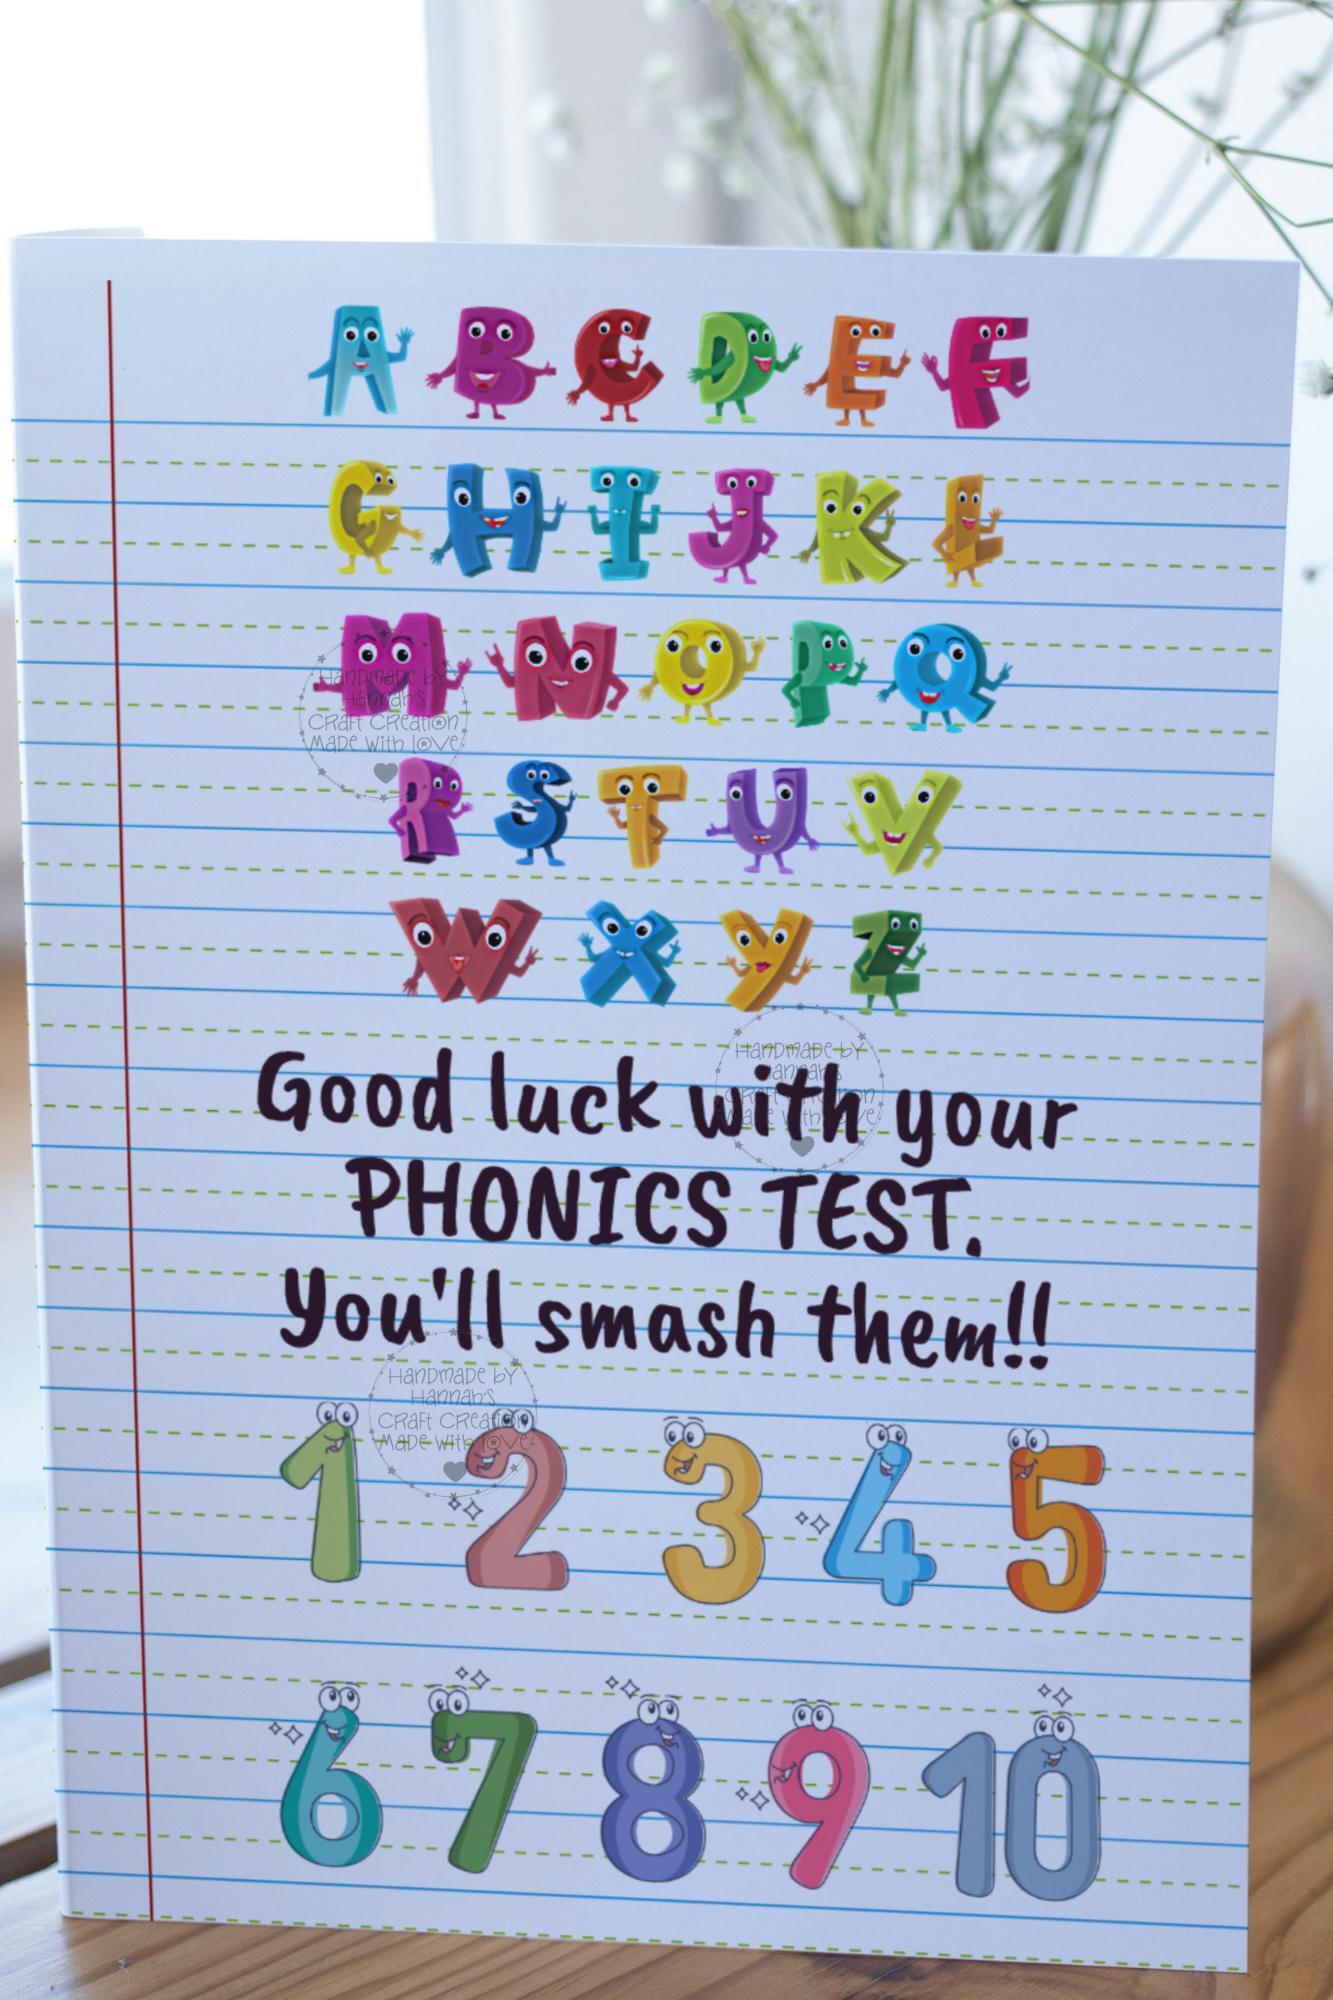 A B C D E F
G H I J K L
M N O P Q
Handmade by
Hannah's
Craft Creation
Made with love
R S T U V
W X Y Z
Handmade by
Hannah's
Craft Creation
Made with love
Good luck with your
PHONICS TEST.
You'll smash them!!
Handmade by
Hannah's
Craft Creation
Made with love
1 2 3 4 5
6 7 8 9 10